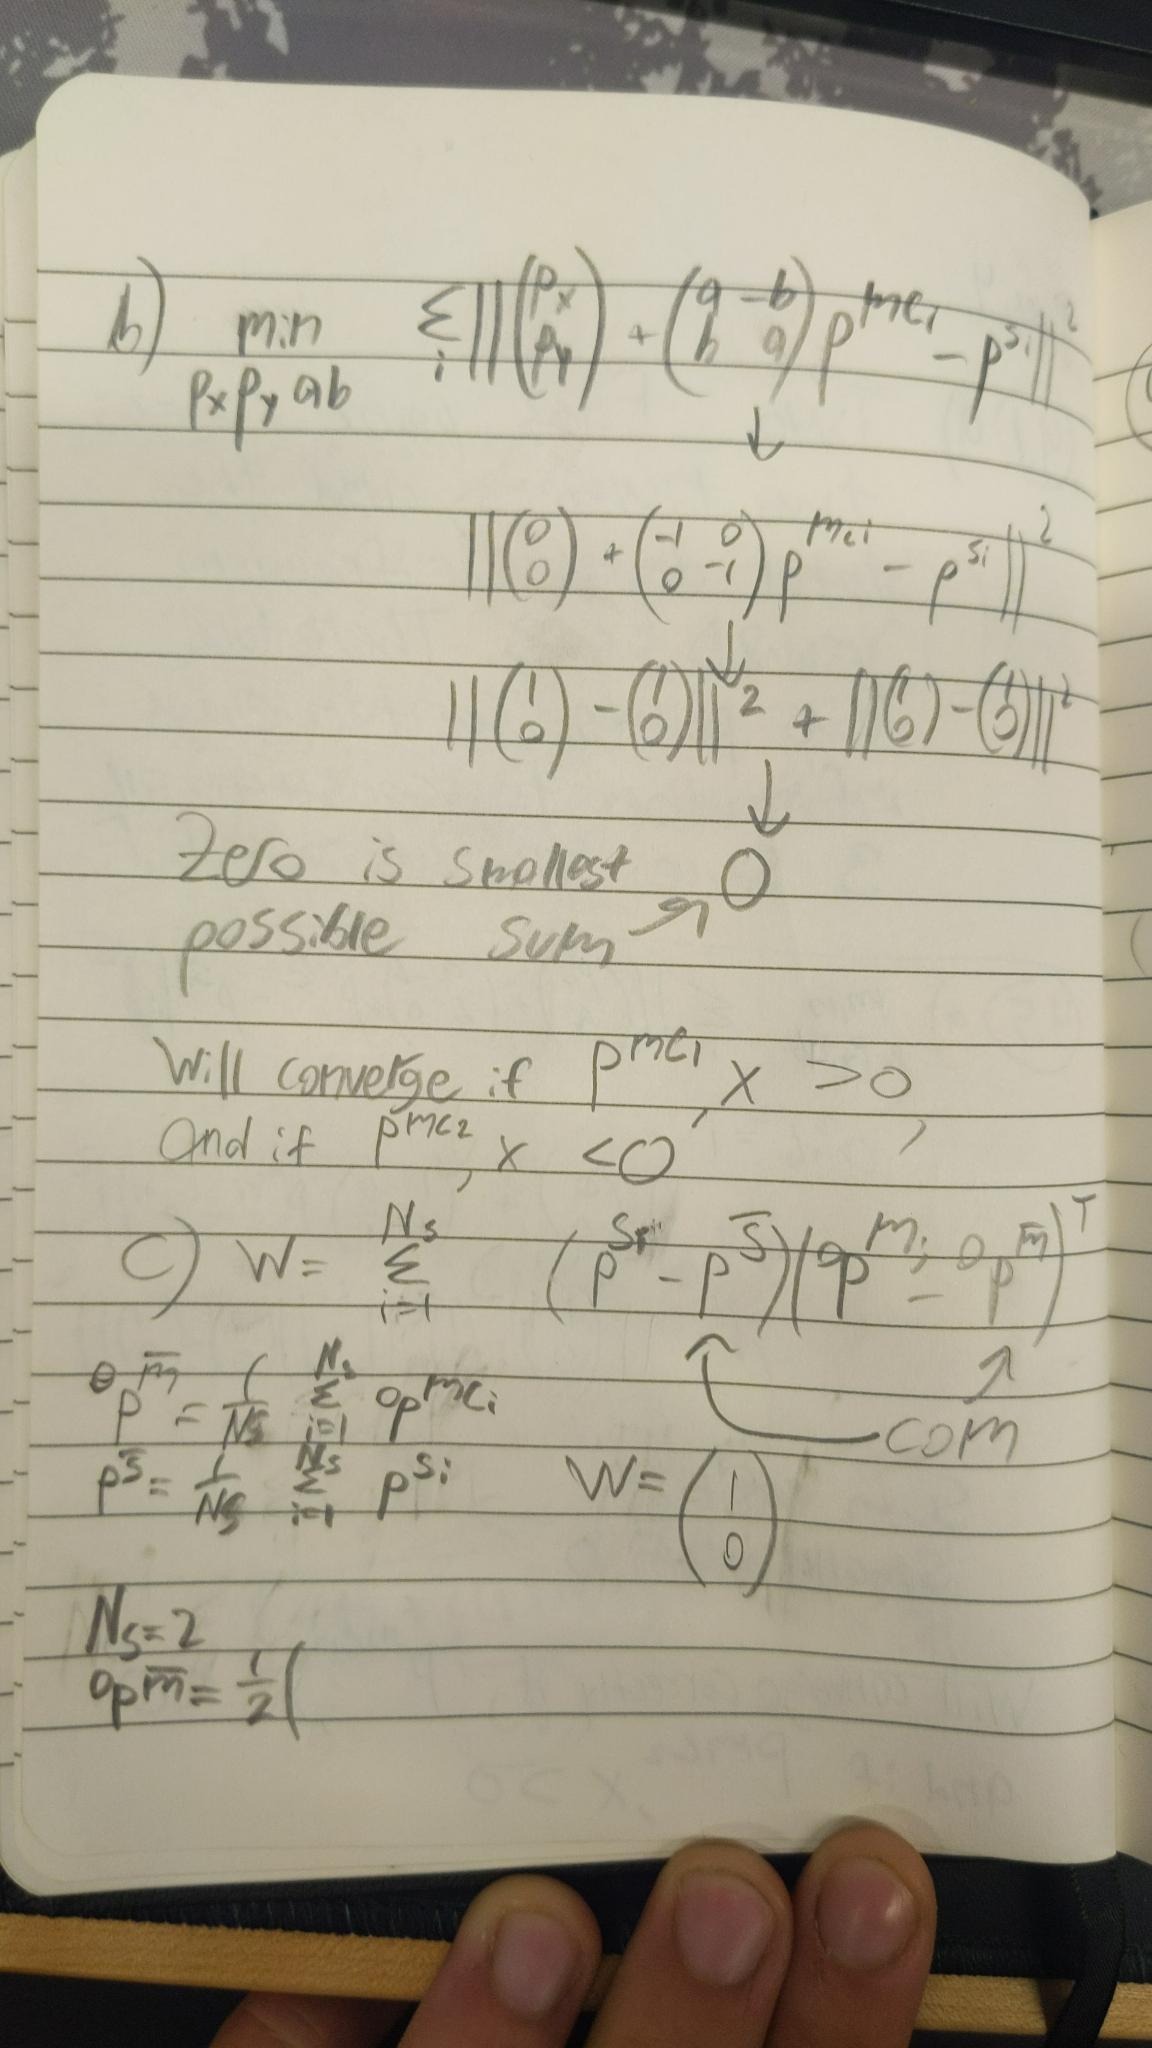 b) min Σ || (px py) + (a -b b a) p^mci - p^si ||²
px py ab i
↓
|| (0 0) + (-1 0 0 -1) p^mci - p^si ||²
↓
|| (1 0) - (1 0) ||² + || (1 0) - (1 0) ||²
↓
Zero is smallest 0
possible sum ↗
Will converge if p^mc1,x >0,
and if p^mc2,x <0
c) W= Σ_{i=1}^{Ns} (p^si - p^s̄)(⁰p^mi - ⁰p^m̄)^T
⁰p^m̄ = 1/Ns Σ_{i=1}^{Ns} ⁰p^mci
com
p^s̄ = 1/Ns Σ_{i=1}^{Ns} p^si W= (1 0)
Ns=2
⁰p^m̄ = 1/2 (